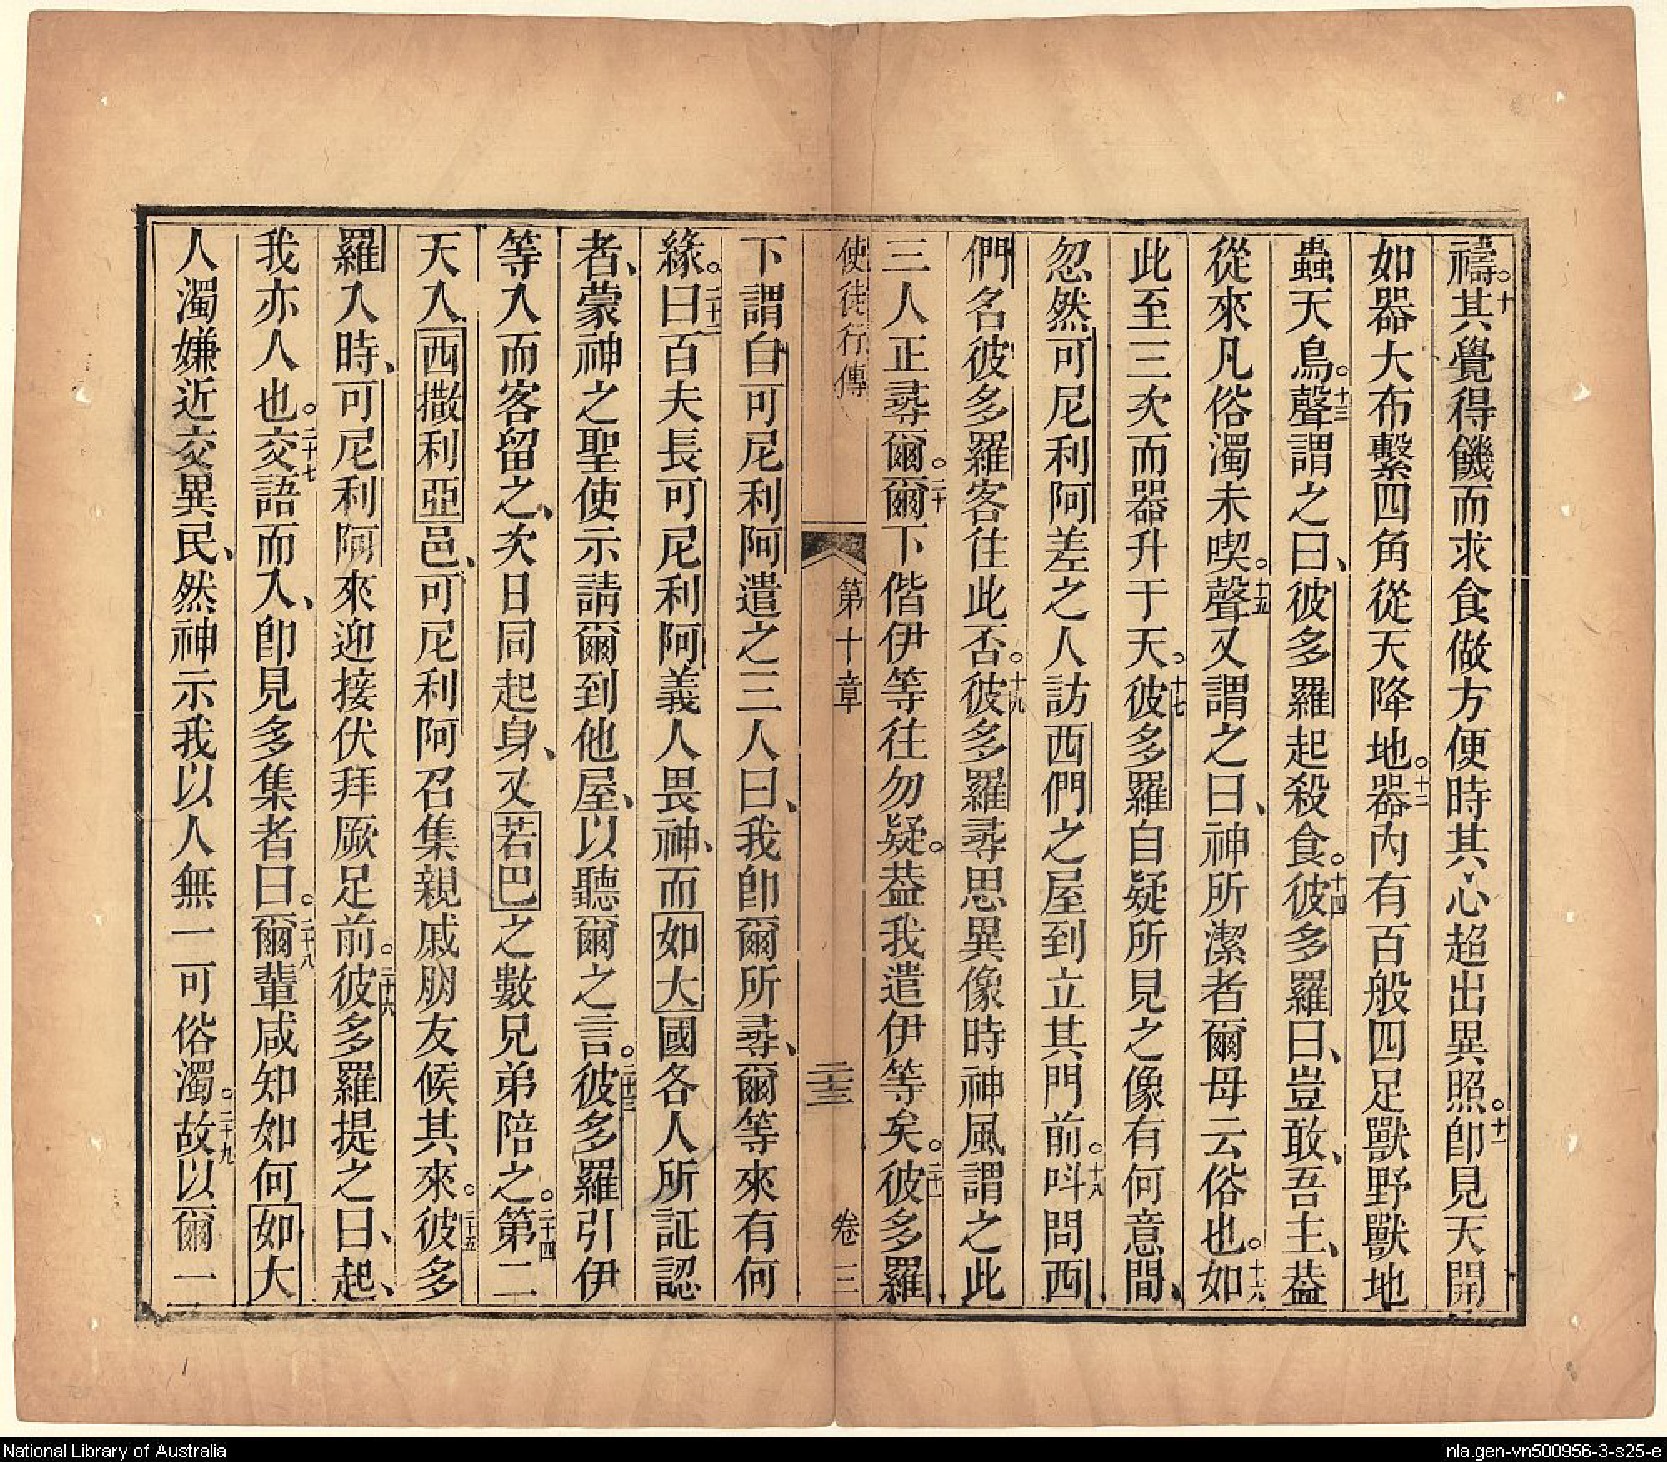 禱。十其覺得饑而求食做方便時其心超出異照。十一卽見天開
如器大布繫四角從天降地。十二器內有百般四足獸野獸地
蟲天鳥。十三聲謂之曰、彼多羅起殺食。十四彼多羅曰、豈敢、吾主、葢
從來凡俗濁未喫。十五聲又謂之曰、神所潔者爾毋云俗也。十六如
此至三次而器升于天。十七彼多羅自疑所見之像有何意間、
忽然可尼利阿差之人訪西們之屋到立其門前。十八呌問西
們名彼多羅客往此否。十九彼多羅尋思異像時神風謂之此
三人正尋爾。二十爾下偕伊等往勿疑。葢我遣伊等矣。二十一彼多羅
使徒行傳 第十章 二十三 卷三
下謂自可尼利阿遣之三人曰、我卽爾所尋、爾等來有何
緣。二十二曰百夫長可尼利阿義人畏神、而如大國各人所証認
者、蒙神之聖使示請爾到他屋、以聽爾之言。二十三彼多羅引伊
等入而客留之、次日同起身、又若巴之數兄弟陪之。二十四第二
天入西撒利亞邑、可尼利阿召集親戚朋友候其來。二十五彼多
羅入時、可尼利阿來迎接伏拜厥足前。二十六彼多羅提之曰、起、
我亦人也。二十七交語而入、卽見多集者曰。二十八爾輩咸知如何如大
人濁嫌近交異民、然神示我以人無一可俗濁。二十九故以爾一
National Library of Australia
nla.gen-vn500956-3-s25-e